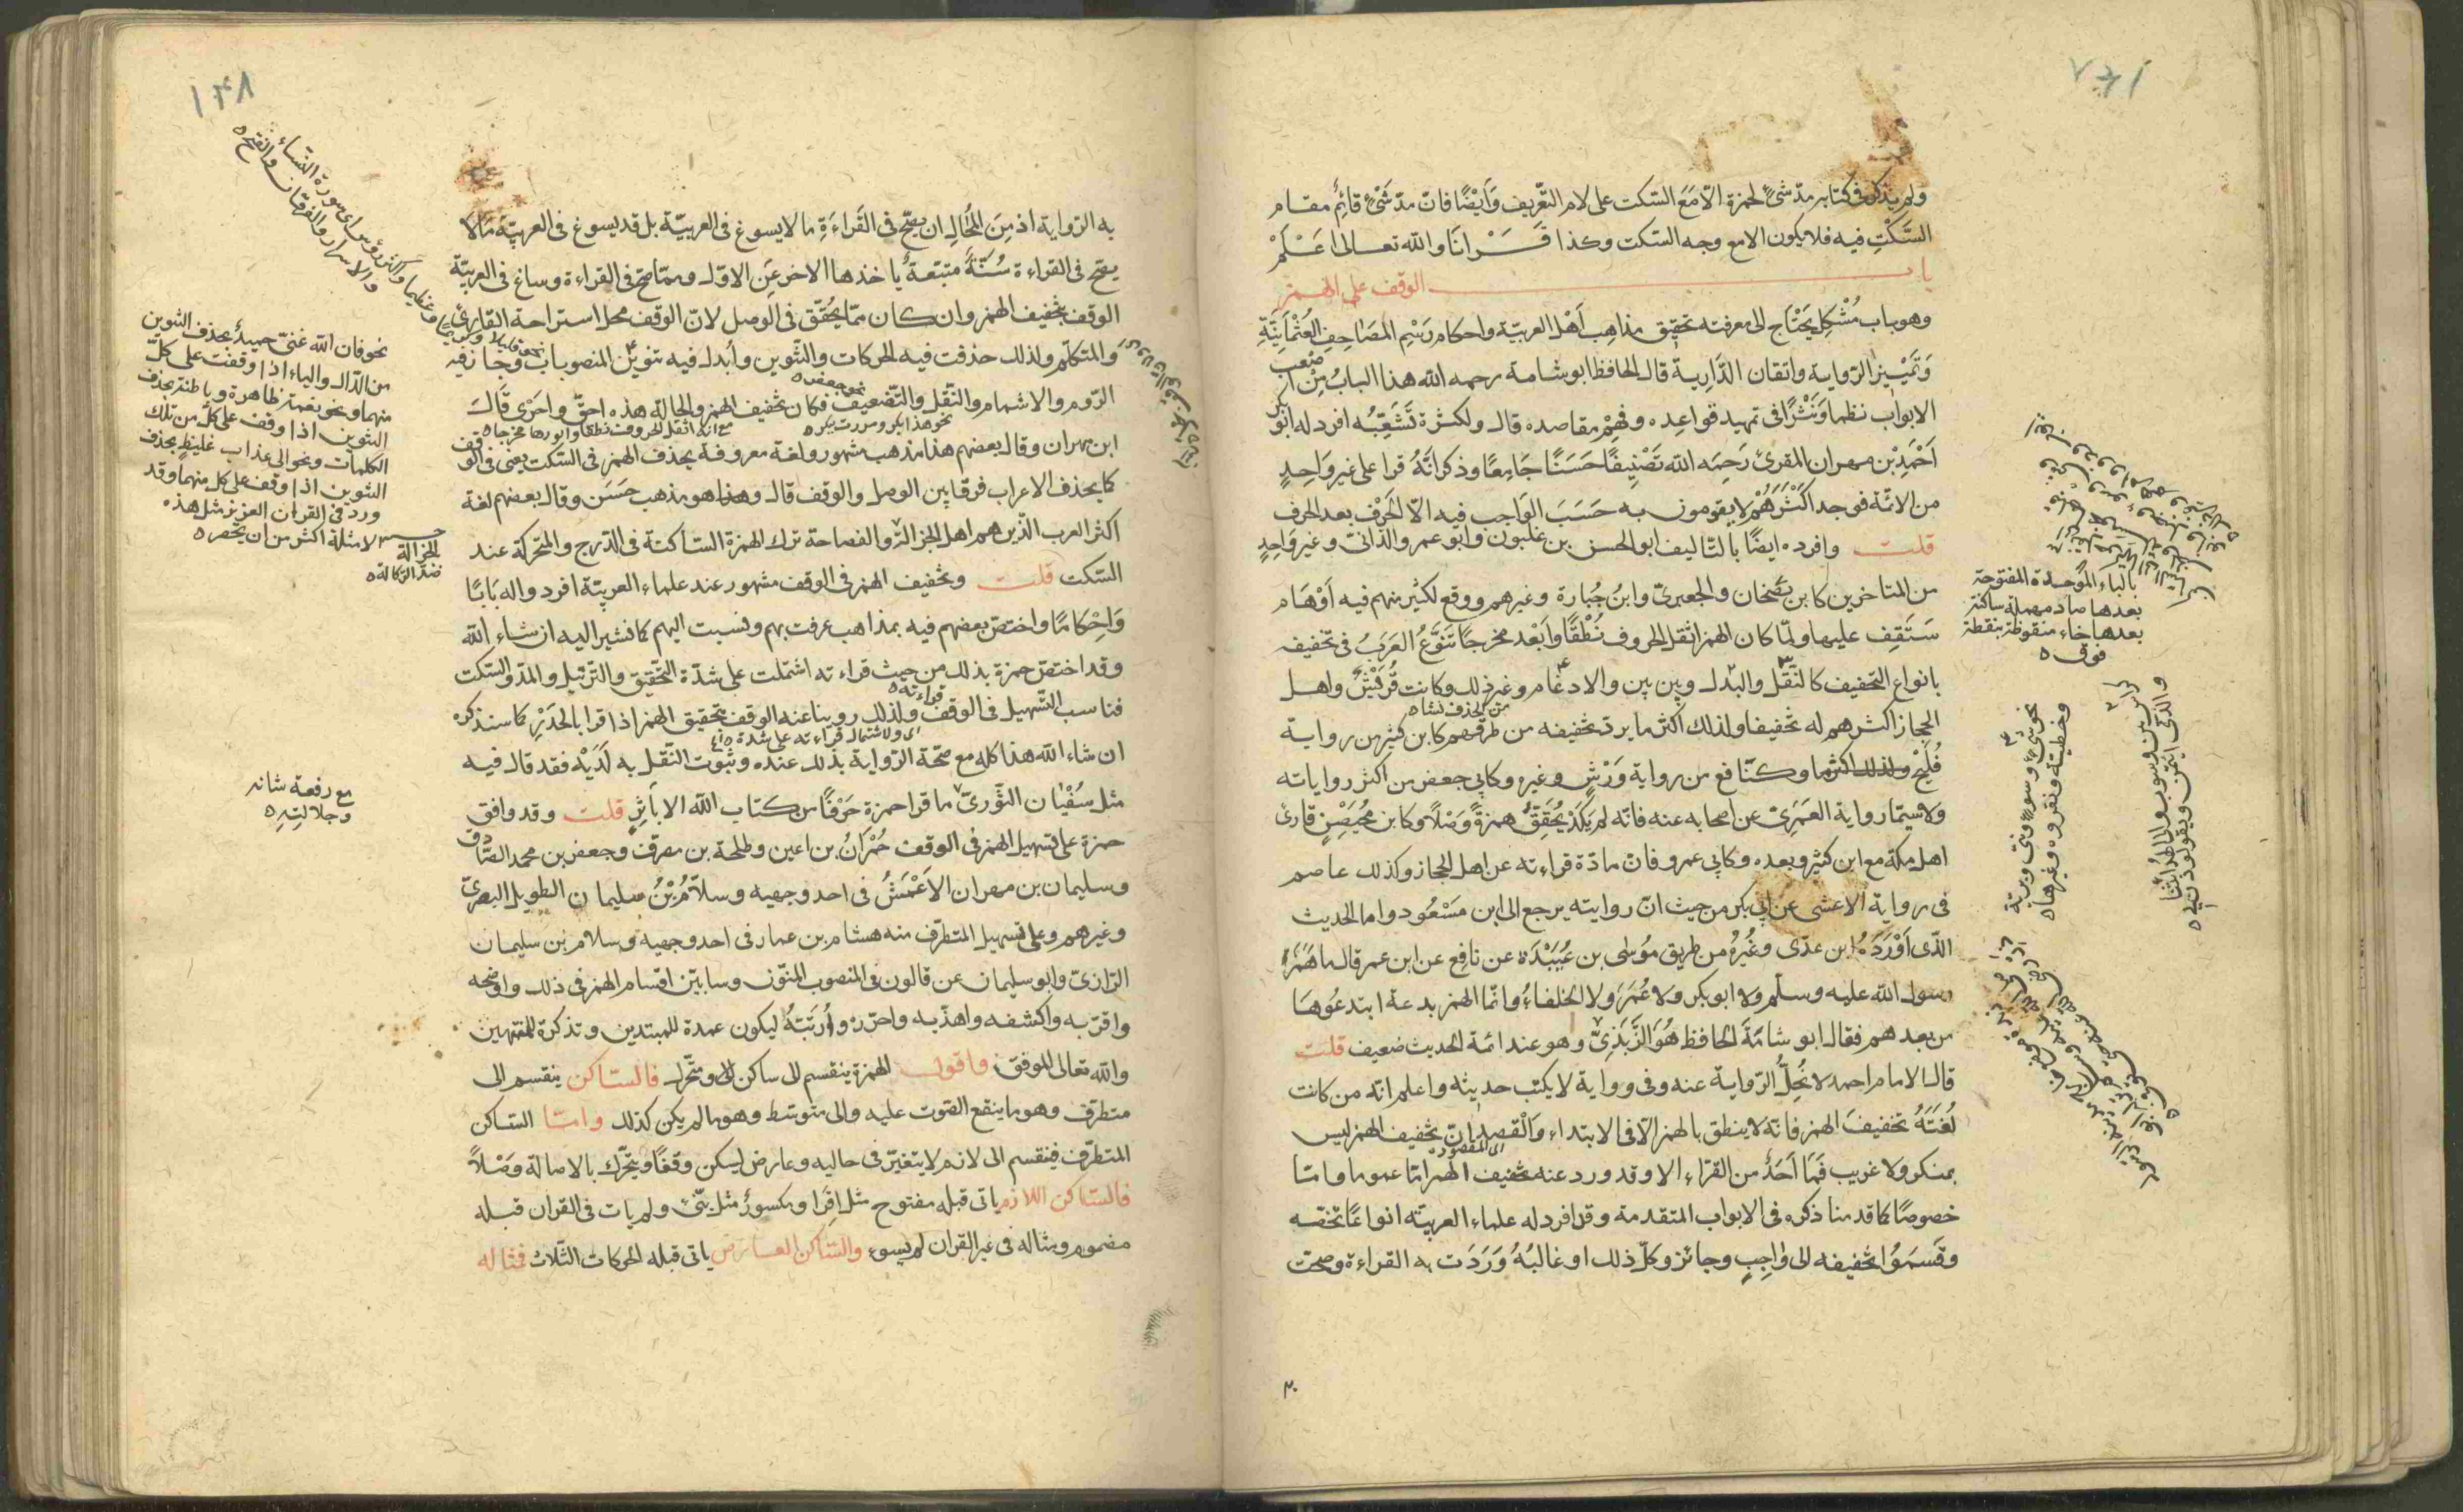 ولم يذكر فى كتابه مدّ شىءٍ لحمزة الّا مَعَ السّكت على لام التّعريف وَاَيْضًا فانّ مدّ شَىْءٍ قائِمٌ مقام
السَّكْتِ فيه فلا يكون الا مع وجه السّكت وكذا قَــرَانَا والله تعالى اعَــلَمْ
باب الوقف على الهمز
وهو باب مُشْكِل يَحْتَاج الى معرفته تحقيق مذاهِب اَهْل العربيّة واحكام رَسْمِ المصَاحِفِ العُثْمَانِيَّةِ
وَتَمْيِيز الرّواية واتقان الدِّارِية قال الحافظ ابو شامة رحمه الله هذا البابُ مِنْ اصْعَبِ
الابواب نظما وَنَثْرًا فى تمهيد قواعِده وفهِمْ مقاصده قال ولكثرة تَشَعُّبِه افرد له ابو بكر
اَحْمَدِ بْن مهران المقرئ رَحِمَه الله تَصْنِيفًا حَسَنًا جَامِعًا وذكر انَّهُ قرا على غير وَاحِدٍ
من الائمّة فوجد اكْثَرَهُمْ لا يقومون به حَسَبَ الوَاجب فيه الّا الحَرْف بعد الحرف
قلت وافرده ايضًا بالتّاليف ابو الحسن بن غلبون وابو عمرو الدّانىّ وغير وَاحِدٍ
من المتاخرين كابن بَصْخان والجعبرىّ وابنُ جُبارة وغيرهم ووقع لكثير منهم فيه اَوْهَام
سَتَقِف عليها ولمّا كان الهمز اثقل الحروف نُطْقًا وَاَبْعد مخرجًا تَنَوَّعُ العَرَبُ فى تخفيفه
بانواع التّخفيف كالنّقل والبدل وبين بين والادغام وغير ذلك وكانت قُرَيْشٌ واهل
الحجاز اكثرهم له تخفيفا ولذلك اكثر ما يرد تخفيفه من طرقهم كابن كثير من رواية
فُلَيْح وكنافع من رواية وَرْشٍ وغيره وكابى جعفر من اكثر رواياته
ولا سيّما رواية العُمَرِىّ عن اصحابه عنه فانّه لم يَكَدْ يُحَقِّقُ همزةً وَصْلاً وكابن مُحَيْصِنٍ قارئ
اهل مكّة مع ابن كثير وبعده وكابى عمرو فانّ مادّة قراءته عن اهل الحجاز وكذلك عاصم
فى رواية الاعشى عن ابى بكر من حيث انّ روايته يرجع الى ابن مَسْعُود واما الحديث
الّذى اَوْرَدَهُ ابن عدّى وغُيْرُهُ من طريق مُوْسٰى بن عُبَيْدَة عن نَافِع عن ابن عمر قال ما هَمَزَ
رسول الله عليه وسلّم ولا ابو بكر ولا عُمَرَ ولا الخلفاءُ وانّما الهمز بدعة ابتدعُوهَا
من بعدهم فقال ابو شَامَةَ الحافظ هُوَ الرَّبَذِىّ وهو عند ائمة الحديث ضعيف قلت
قال الامام احمد لا تُحِلُّ الرّواية عنه وفى رواية لا يكتب حديثه واعلم انّه من كانت
لُغَتَهُ تخفيفَ الهمز فانّه لا ينطق بالهمز الّا فى الابتداء وَالْقصد انّ تخفيف الهمز ليس
بمنكر ولا غريب فَمَا اَحَدٌ من القرّاء الا وقد ورد عنه تخفيف الهمز امّا عموما وامّا
خصوصًا كما قدمنا ذكره فى الابواب المتقدمة وقد افرد له علماء العربيّه انواعًا تخصّه
وقَسَمُوا تخفيفه الى وَاجِبٍ وجائز وكلّ ذلك او غالبُهُ وَرَدَت به القراءة وصحت
بالباء الموحدة المفتوحة
بعدها صاد مهملة ساكنة
بعدها خاء منقوطة بنقطة
فوق ه
نحو شىءٍ وسوءٍ ونبئ وبريّة
وخطيئة ونقروه وغيرها ه
١٤٨
به الرّواية اذ مِنَ المُحَالِ ان يصّح فى القَراءَةِ ما لا يسوغ فى العربيّة بل قد يسوغ فى العربيّة مَالا
يصّح فى القراءة سُنَّةٌ متبّعةٌ ياخذها الاخر عَنِ الاوّل وممّا صّح فى القراءة وساغ فى العربيّة
الوقف بتخفيف الهمز وان كان ممّا يُحَقَّق فى الوصل لانّ الوقف محل استراحة القارئ
وَالمتكلّم ولذلك حذفت فيه الحركات والتّنوين وابُدل فيه تنوين المنصوبات وجاز فيه
الرّوم والاشمام والنّقل والتّضعيف فكان تخفيف الهمز والحالة هذه احقَّ واحرى قَالَ
ابن مهران وقال بعضهم هذا مذهب مشهور ولغة معروفة يحذف الهمز فى السّكت يعنى فى الوقف
كما يحذف الاعراب فرقا بين الوصل والوقف قال وهذا هو مذهب حَسَن وقال بعضهم لغة
اكثر العرب الّذين هم اهل الجزالة والفصاحة ترك الهمزة السّاكنة فى الدّرج والمتحركة عند
السّكت قلت وتخفيف الهمز فى الوقف مشهور عند علماء العربيّة افردوا له بَابًا
وَاحْكَامًا واختصّ بعضهم فيه بمذاهب عرفت بهم ونسبت اليهم كما نشير اليه ان شاء الله
وقد اختصّ حمزة بذلك من حيث قراءته اشتملت على شدّة التّحقيق والتّرتيل والمدّ والسّكت
فناسب التّسهيل فى الوقف ولذلك روينا عنه الوقف بتحقيق الهمز اذا قرا بالحَدْرِ كما سنذكره
ان شاء الله هذا كله مع صّحة الرّواية بذلك عنده وثبوت النّقل به لَدَيْه فقد قال فيه
مثل سُفْيَان الثّورىّ ما قرا حمزة حَرْفًا من كتاب الله الا بِاَثِرٍ قلت وقد وافق
حمزة على تسهيل الهمز فى الوقف حُمْرَانُ بن اعين وطلحة بن مصرف وجعفر بن محمد الصّادق
وسليمان بن مهران الاَعْمَشُ فى احد وجهيه وسلاَّمُ بْنُ سليمان الطويل البصرىّ
وغيرهم وعلى تسهيل المتطرّف منه هشام بن عمار فى احد وجهيه وسلام بن سليمان
الرّازىّ وابو سليمان عن قالون فى المنصوب المنوّن وسابيّن اقسام الهمز فى ذلك واوضحه
واقرّبه واكشفه واهذّبه واحرّره وَاُرَتّبَهُ ليكون عمدة للمبتدين وتذكرة للمنتهين
والله تعالى الموفّق واقول الهمزة ينقسم الى ساكن والى متحّرك فالسّاكن ينقسم الى
متطرّف وهو ما ينقطع الصّوت عليه والى متوسّط وهو مالم يكن كذلك وامّا السّاكن
المتطرّف فينقسم الى لازم لا يتغيّر فى حاليه وعارض ليسكن وقفًا ويتحرّك بالاصالة وَصْلاً
فالسّاكن اللازم ياتى قبله مفتوح مثل اقْرَا ومكسورٌ مثل نبّئ ولم يات فى القران قبله
مضموم ومثاله فى غير القران لم يسوء والسّاكن العارض ياتى قبله الحركات الثّلاث فمثاله
نحو فان الله غنىّ حميدٌ بحذف التّنوين
من الدّال والياء اذا وقفت على كلّ
منهما ونحو نعمة ظاهرة وباطنة بحذف
التنوين اذا وقف على كلّ من تلك
الكلمات ونحو الى عذاب غليظٍ بحذف
التنوين اذا وقف على كل منهما وقد
ورد فى القران العزيز مثل هذه
الامثلة اكثر من ان يحصر ه
الجزالة
ضدّ الرّكاكة ه
مع رفعة شانه
وجلالتِهِ ه